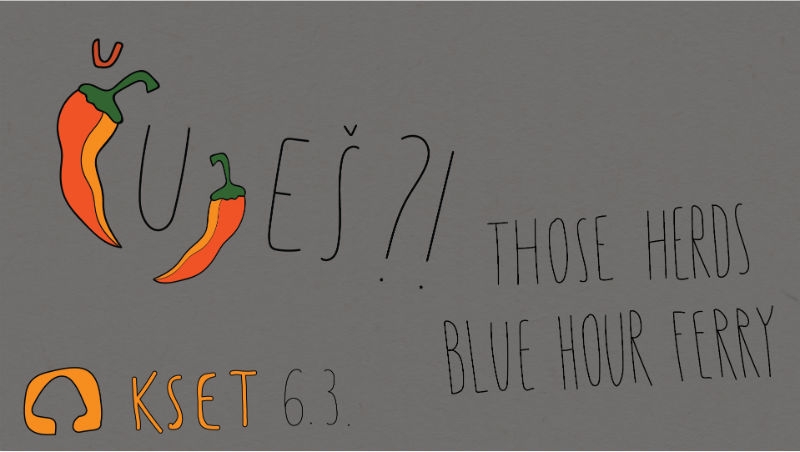 Čuješ?!
THOSE HERDS
BLUE HOUR FERRY
KSET 6.3.